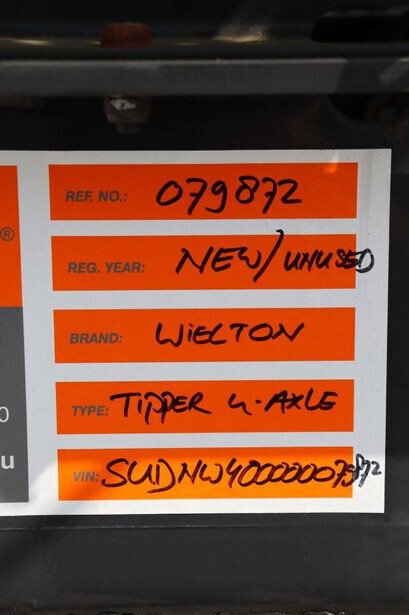 ®
REF. NO.: 079872
REG. YEAR: NEW/UNUSED
BRAND: WIELTON
TYPE: TIPPER 4-AXLE
0
u
VIN: SUDNW400000079872